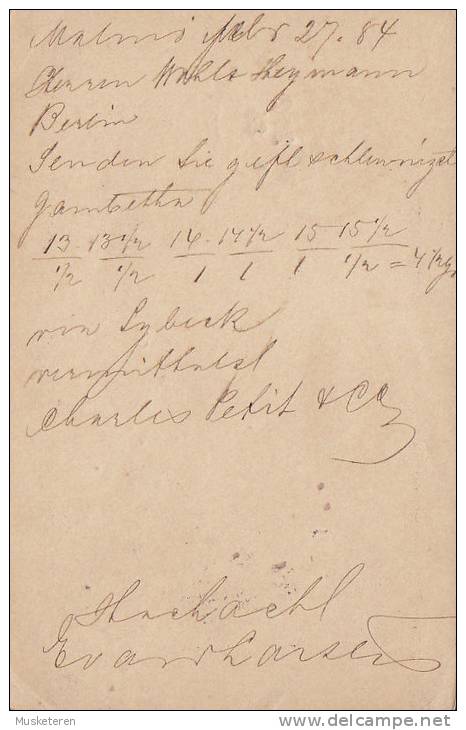 Malmö Febr 27. 84
Herren Wohls Heymann
Berlin
Senden Sie gefl schleunigst
Gambetha
13 . 13 1/2 14 . 14 1/2 15 . 15 1/2
1/2 1/2 1 1 1 1/2 = 4 1/2
via Lybeck
vermittelst
Charles Petit & Co
Hochachtl
Larsen
Musketeren
www.delcampe.net